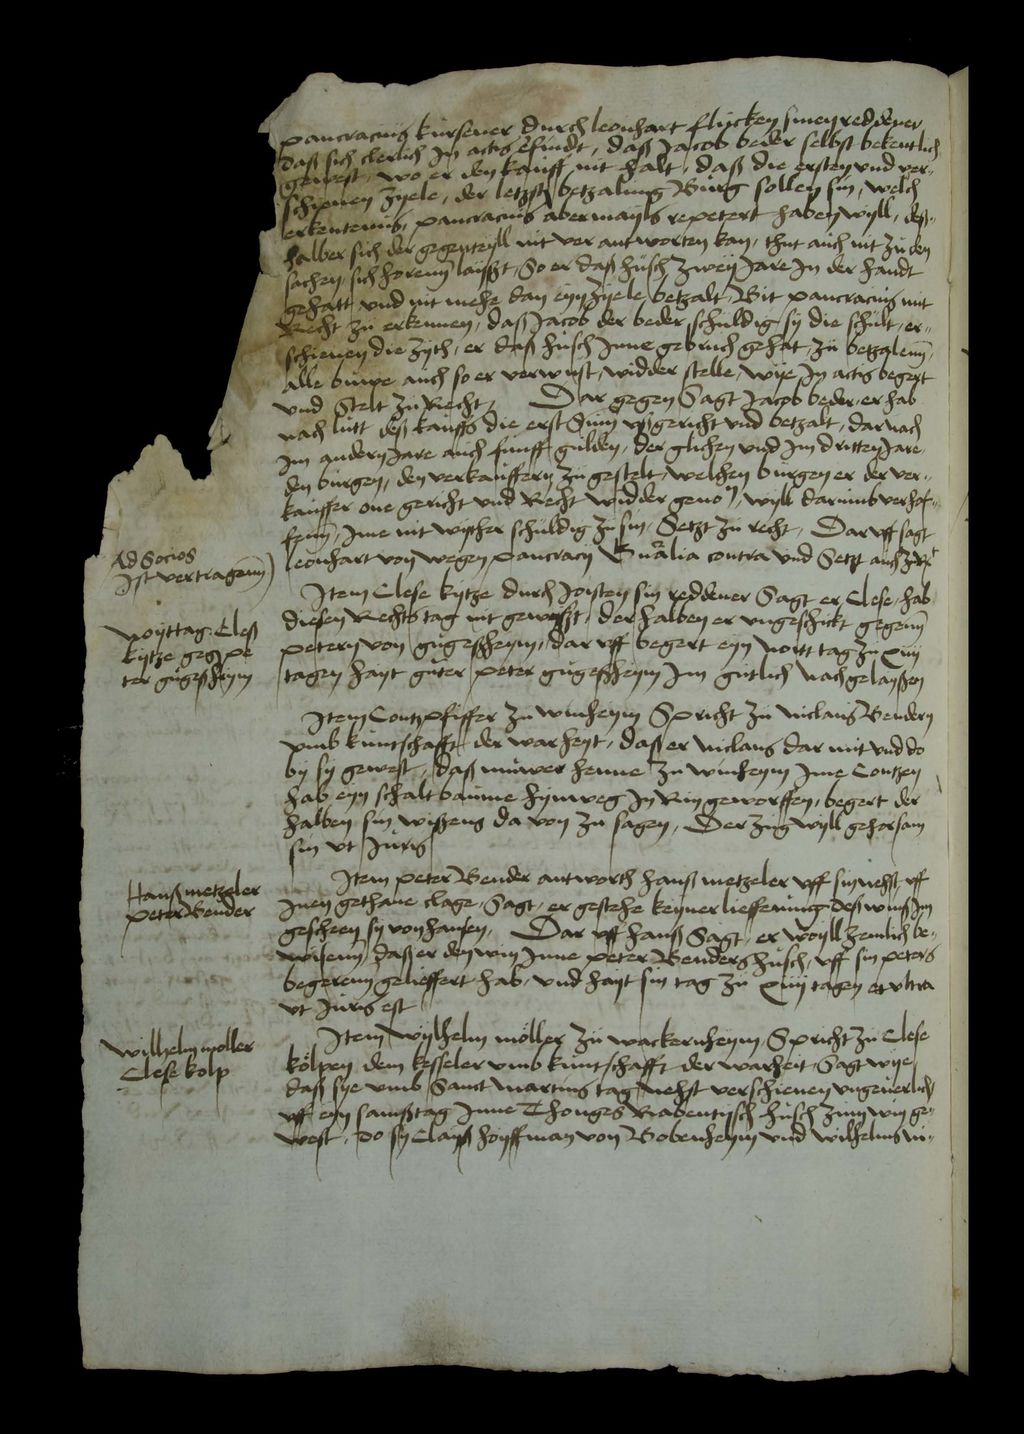 pancracius kursener durch leonhart flucken sinen reddener
daß sich clerlich in actis erfindt, daß Jacob beder selbst bekentlich
gewest, wo er den kauff nit halt, daß die ersten und ver-
schienen zyele, der letzst betzalung Burg sollen sin, welch
erkentenius, pancracius abermayls repetert haben wyll, deß-
halber sich der gegenteyll nit ver antworten kan, thut auch nit zu den
sachen, sich horenn laysßt, So er daß husch zwey Jare In der handt
gehatt und nit mehe dan eyn zyele betzalt, Bit pancracius mit
Recht zu erkennen, daß Jacob der beder schuldig sy die schult, er-
schienen die zyth, er daß husch Inne gebruch gehat, zu betzalenn,
alle buwe auch so er verwust, widder stelle, wye In actis begert
und Stelt zu Recht, Dar gegen Sagt Jacob beder, er hab
nach lutt deß kauffs die erst Sum ußgericht und betzalt, dar nach
Im andern Jare auch funff gulden, der glichen und Im dritten Jare
den burgen, den verkauffern zu gestelt, welchen burgen er der ver-
kauffer one gericht und Recht widder geno(n), wyll darumb verhof-
fenn, Ime nit wyther schuldig zu sin, Setzt zu recht, Dar uff sagt
leonhart von wegen pancracy Gnralia contra und Setzt auch zu Re(ch)t
Ad Socios
Ist vertragenn
Item Clese kytze durch Joisten sin reddener Sagt er Clese, hab
diesen Rechts tag nit gewyßt, der halben er ungeschickt gegenn
petern von gugeßheym, dar uff begert eyn nott tag zu xiiii
tagen hayt guter peter gugeßheym Im gutlich nachgelayßen
Noyttag Cleß
kytze gegen pe
ter gugeßheym
Item Contz pfiffer zu winheym Spricht zu niclaus Bendern
umb kuntschafft der warheyt, daß er niclaus dar mit und do
by sy gewest, daß muwer henne zu winheym Ime Contzen
hab eyn schalt baume hynweg In Rin geworffen, begert der
halben sin wyßens da von zu sagen, Der zug wyll gehorsam
sin ut Juris
Item peter Bender antworth hanß metzeler uff sin nehst uff
Inen gethane clage, Sagt, er gestehe keyner lieffering deß wins Im
gescheen sy von hansen, Dar uff hanß Sagt, er woyll zemlich be-
wisenn, daß er den win Inne peter Benders husch, uff sin peters
begerenn gelieffert hab, und hayt sin tag zu xiiii tagen et ultra
ut Juris est
Hanß metzeler
peter Bender
Item Wylhelm moller zu wackernheym, Spricht zu Clese
kolpen dem kesseler umb kuntschafft der warheit, Sagt wye
daß sye umb Sanct martins tag nehst verschienen ungeuerlich
uff eyn samßtag Inne Thonges Rabentisch husch zum win ge-
west, do sy Clayß hoyffman von Bobenheym und wilhelms ni-
Wilhelm moller
Clese kolp